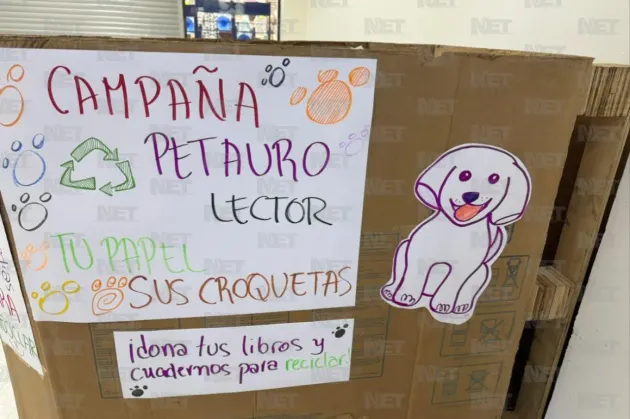 CAMPAÑA
PETAURO
LECTOR
TU PAPEL
SUS CROQUETAS
¡dona tus libros y
cuadernos para reciclar!
NET